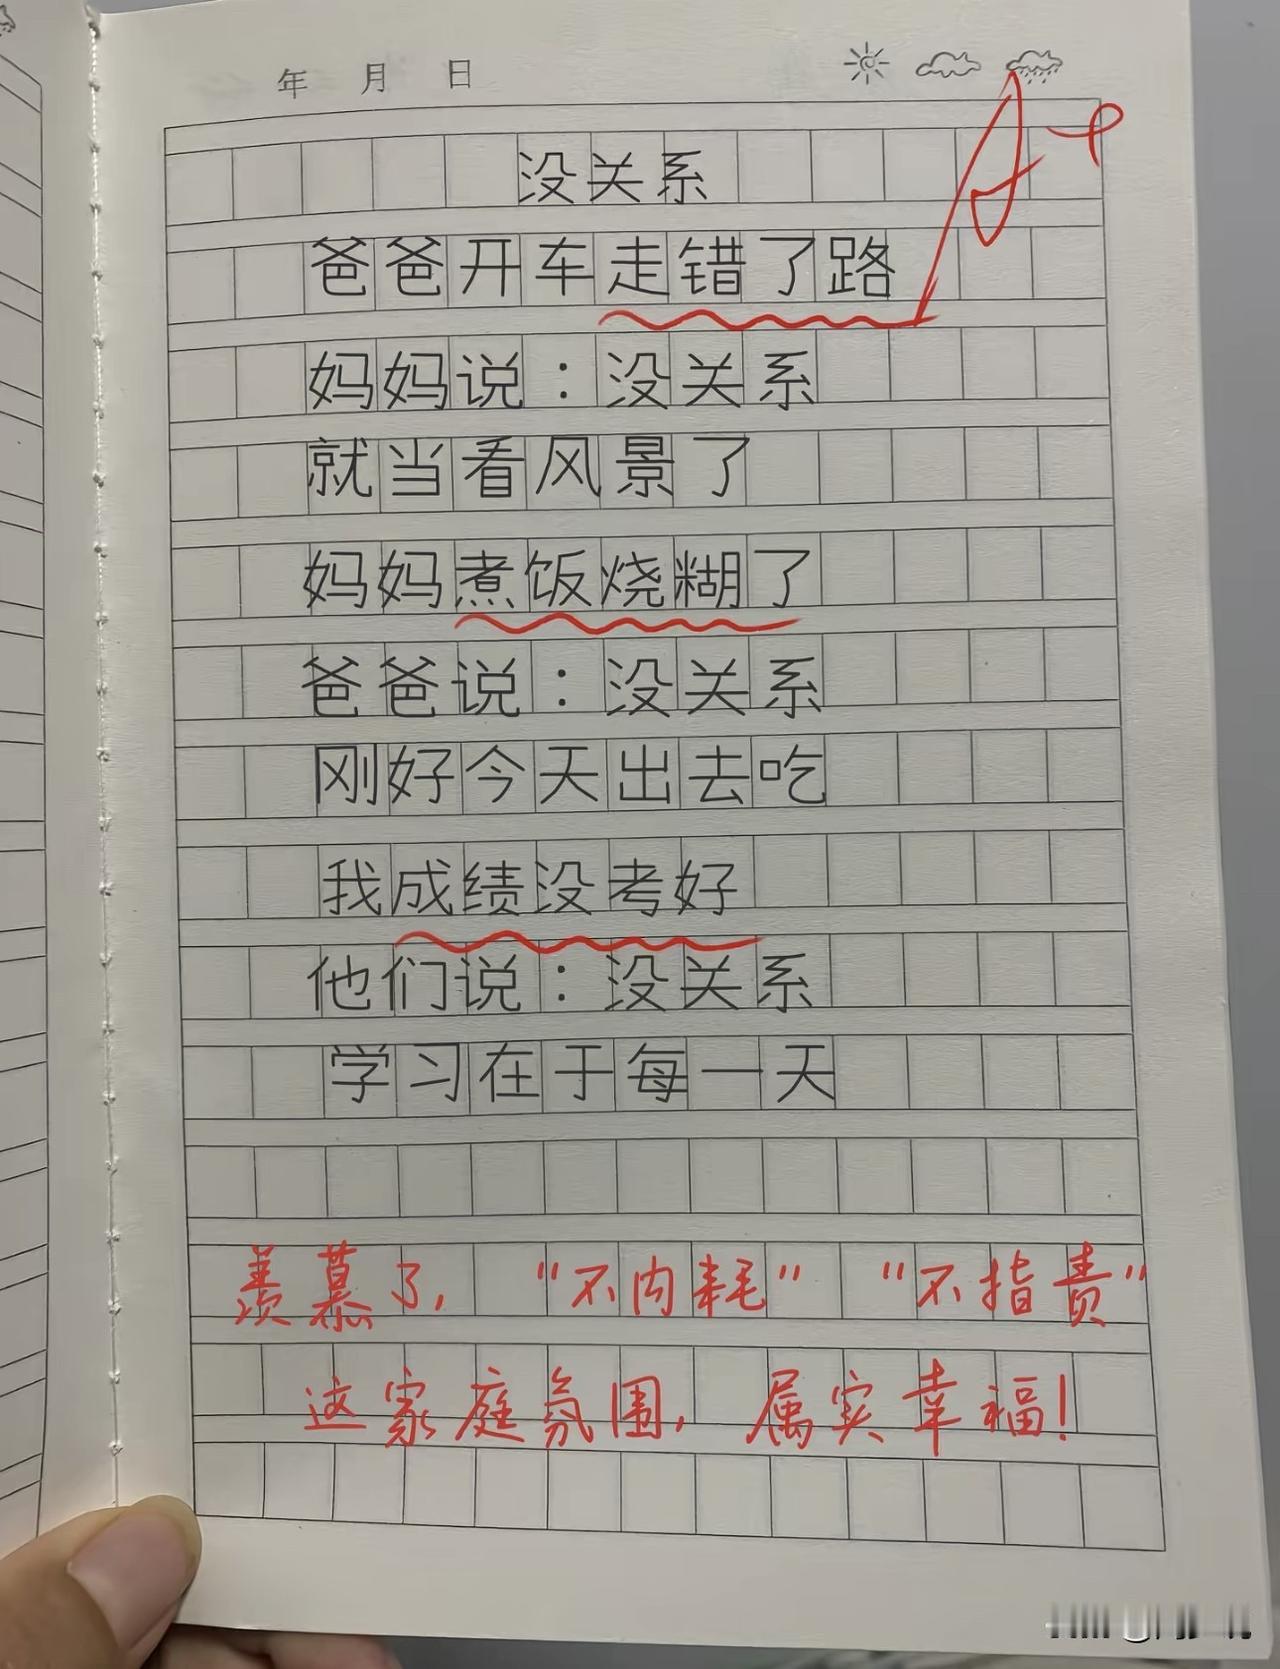 年 月 日
没关系
爸爸开车走错了路
妈妈说：没关系
就当看风景了
妈妈煮饭烧糊了
爸爸说：没关系
刚好今天出去吃
我成绩没考好
他们说：没关系
学习在于每一天
羡慕了，“不内耗”“不指责”
这家庭氛围，属实幸福！